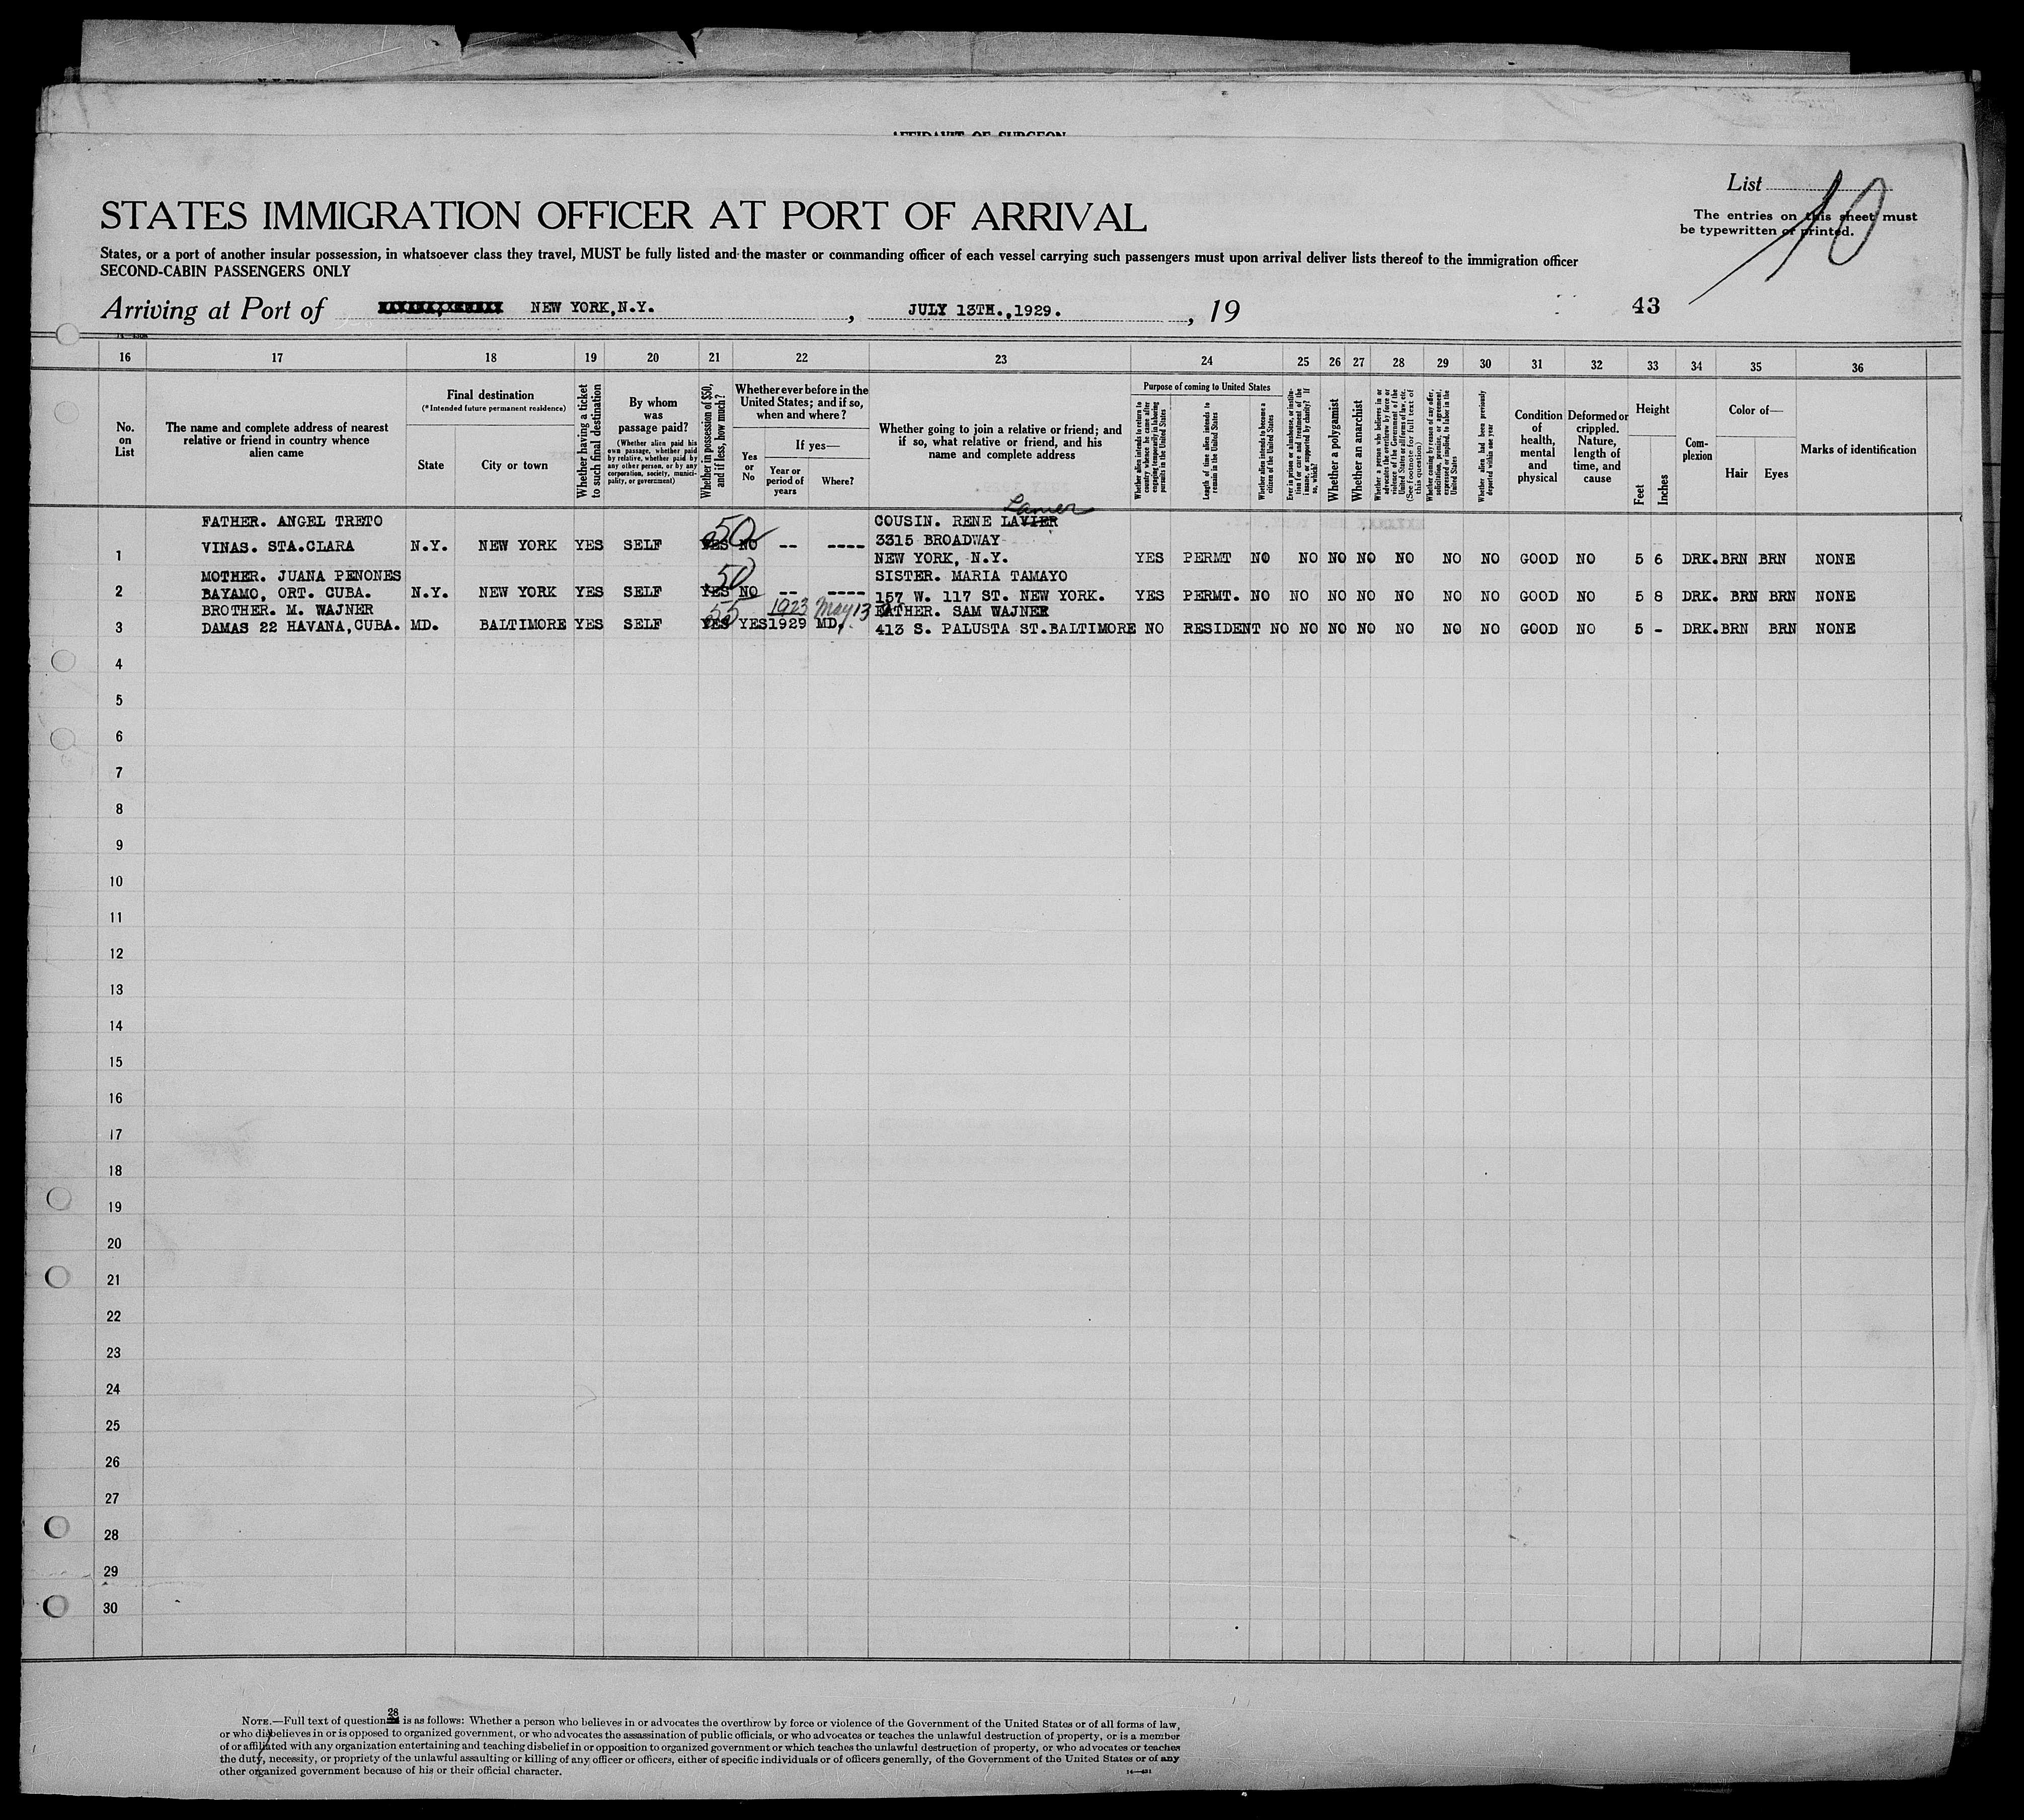 AFFIDAVIT OF SURGEON
List 10
STATES IMMIGRATION OFFICER AT PORT OF ARRIVAL
The entries on this sheet must
be typewritten or printed.
States, or a port of another insular possession, in whatsoever class they travel, MUST be fully listed and the master or commanding officer of each vessel carrying such passengers must upon arrival deliver lists thereof to the immigration officer
SECOND-CABIN PASSENGERS ONLY
Arriving at Port of NEW YORK,N.Y. , JULY 13TH.,1929. , 19 43
16 17 18 19 20 21 22 23 24 25 26 27 28 29 30 31 32 33 34 35 36
No.
on
List
The name and complete address of nearest
relative or friend in country whence
alien came
Final destination
(*Intended future permanent residence)
State
City or town
Whether having a ticket
to such final destination
By whom
was
passage paid?
(Whether alien paid his
own passage, whether paid
by relative, whether paid by
any other person, or by any
corporation, society, munici-
pality, or government)
Whether in possession of $50,
and if less, how much?
Whether ever before in the
United States; and if so,
when and where?
Yes
or
No
If yes—
Year or
period of
years
Where?
Whether going to join a relative or friend; and
if so, what relative or friend, and his
name and complete address
Purpose of coming to United States
Whether alien intends to return to
country whence he came after
engaging temporarily in laboring
pursuits in the United States
Length of time alien intends to
remain in the United States
Whether alien intends to become a
citizen of the United States
Ever in prison or almshouse, or institu-
tion for care and treatment of the
insane, or supported by charity? If
so, which?
Whether a polygamist
Whether an anarchist
Whether a person who believes in or
advocates the overthrow by force or
violence of the Government of the
United States or all forms of law, etc.
(See footnote for full text of
this question)
Whether coming by reason of any offer,
solicitation, promise, or agreement,
expressed or implied, to labor in the
United States
Whether alien had been previously
deported within one year
Condition
of
health,
mental
and
physical
Deformed or
crippled.
Nature,
length of
time, and
cause
Height
Feet
Inches
Com-
plexion
Color of—
Hair
Eyes
Marks of identification
FATHER. ANGEL TRETO COUSIN. RENE LAVIER Lamer
1 VINAS. STA.CLARA N.Y. NEW YORK YES SELF YES 50 NO -- ---- 3315 BROADWAY
NEW YORK, N.Y. YES PERMT NO NO NO NO NO NO NO GOOD NO 5 6 DRK. BRN BRN NONE
MOTHER. JUANA PENONES SISTER. MARIA TAMAYO
2 BAYAMO, ORT. CUBA. N.Y. NEW YORK YES SELF YES 50 NO -- ---- 157 W. 117 ST. NEW YORK. YES PERMT. NO NO NO NO NO NO NO GOOD NO 5 8 DRK. BRN BRN NONE
BROTHER. M. WAJNER 55 1923 May 13 FATHER. SAM WAJNER
3 DAMAS 22 HAVANA,CUBA. MD. BALTIMORE YES SELF YES YES 1929 MD. 413 S. PALUSTA ST.BALTIMORE NO RESIDENT NO NO NO NO NO NO NO GOOD NO 5 - DRK. BRN BRN NONE
4
5
6
7
8
9
10
11
12
13
14
15
16
17
18
19
20
21
22
23
24
25
26
27
28
29
30
NOTE.—Full text of question 28 is as follows: Whether a person who believes in or advocates the overthrow by force or violence of the Government of the United States or of all forms of law,
or who disbelieves in or is opposed to organized government, or who advocates the assassination of public officials, or who advocates or teaches the unlawful destruction of property, or is a member
of or affiliated with any organization entertaining and teaching disbelief in or opposition to organized government or which teaches the unlawful destruction of property, or who advocates or teaches
the duty, necessity, or propriety of the unlawful assaulting or killing of any officer or officers, either of specific individuals or of officers generally, of the Government of the United States or of any
other organized government because of his or their official character.